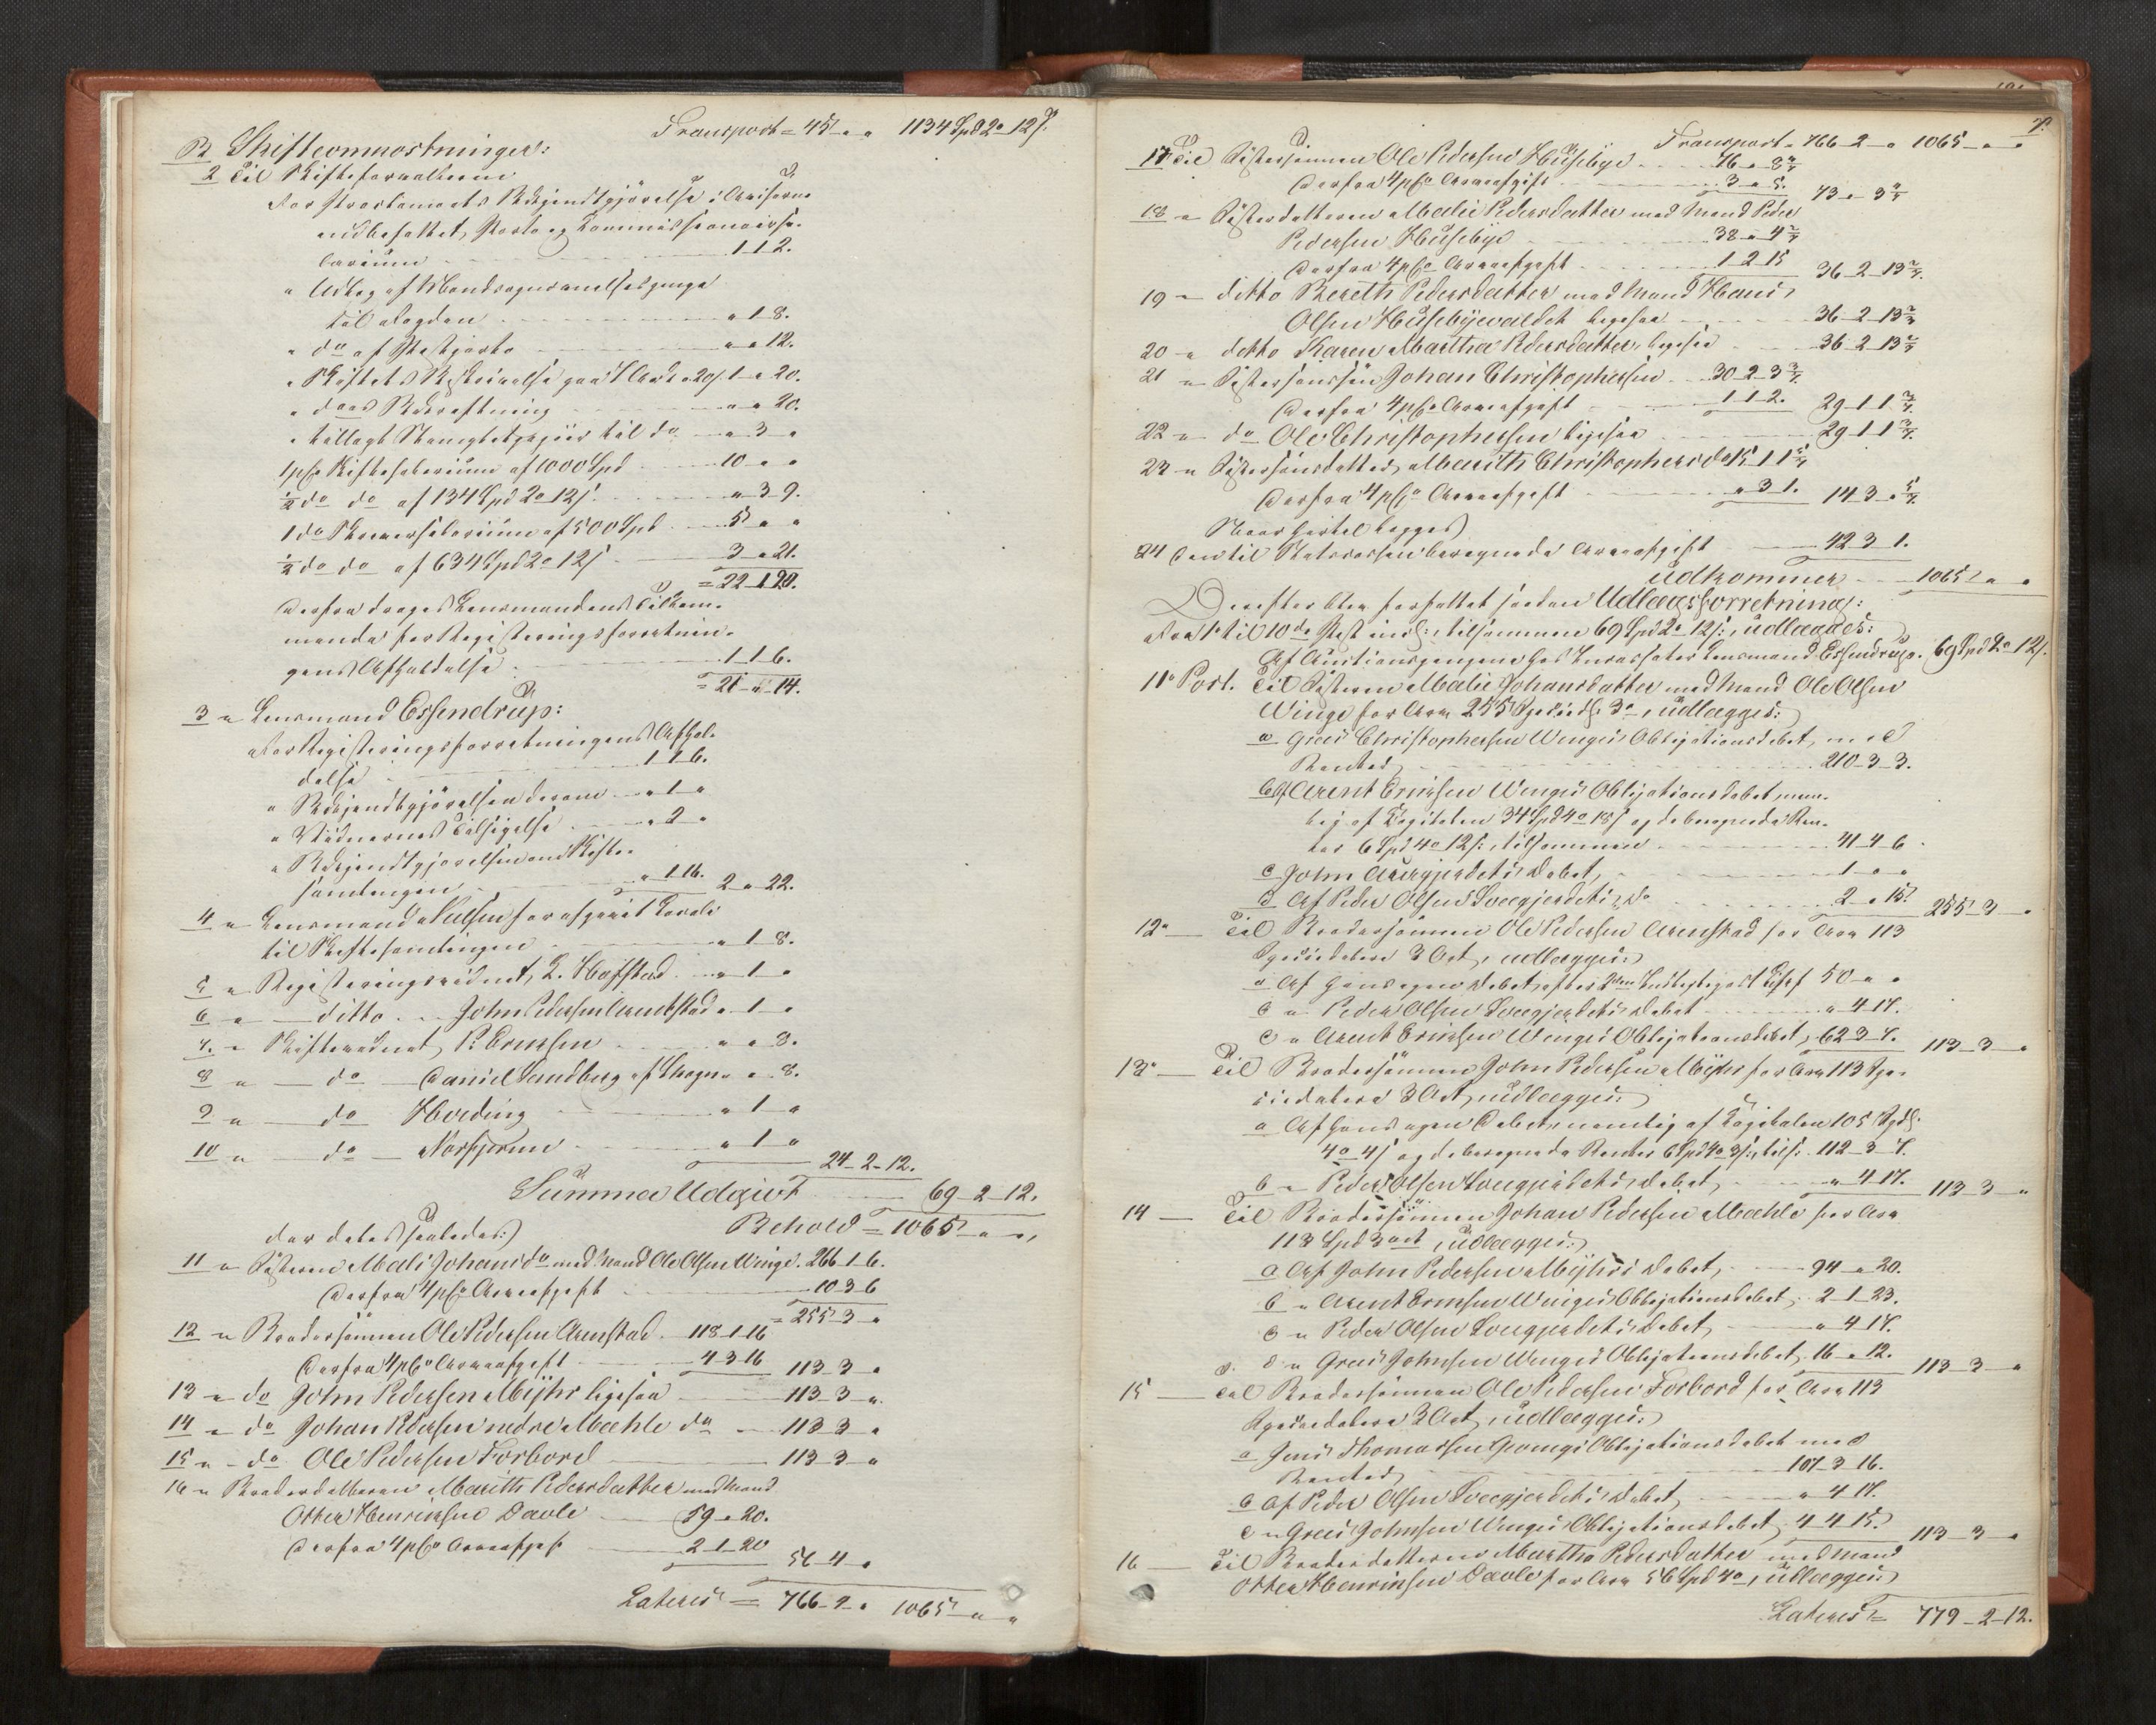 Transport = 45 " " 1134 Spd 2 o 12 s.
B Skifteomkostninger:
2 Til Skifteforvalteren
For Proclamaets Bekjendtgjørelse i Aviserne
indbefattet Porto og Commissionairsa-
larium 1 1 2.
" Udtog af
til Fogden " 1 8.
" do af " " 12.
" Skiftets Beskrivelse 1 " 20.
" dets Bekræftning " " 20.
" tillagt Stemplet papiir til do " 3 "
1 pCt Skiftesalarium af 1000 Spd 10 " "
1/2 do do af 134 Spd 2 o 12 s. " 3 9.
1 do Skriversalarium af 500 Spd 5 " "
1/2 do do af 634 Spd 2 o 12 s 3 " 21.
= 22 1 20.
Derfra drages Lensmandens Tilkom-
mende for Registeringsforretnin-
gens Afholdelse 1 1 6.
= 21 " 14.
3 " Lensmand Essendrup:
For Registeringsforretningens Afhol-
delse 1 1 6.
" Bekjendtgjørelsen derom " 1 "
" Vidnernes Tilsigelse " 2 "
" Bekjendtgjørelsen om Skifte-
samlingen " 1 16. 2 " 22.
4 " Lensmand Nilsen for
til Skiftesamlingen " 1 8.
5 " Registeringsvidnet, L. Hofstad " 1 "
6 " — ditto John Pedersen Arentstad " 1 "
7. " Skiftevidnet P. Ericksen " " 8.
8 " — do — Daniel Sandberg af Skogn " " 8.
9 " — do Hveding " 1 "
10 " — do — Norhjerm " 1 "
24 - 2 - 12.
Summa Udgivt 69 - 2 - 12.
Behold = 1065 " "
der deles saaledes:
11 " Søsteren Mali Johansd. med Mand Ole Olsen Winge. 266 1 6.
Derfra 4 pCto Arveafgift 10 3 6
= 255 3 "
12 " Brodersønnen Ole Pedersen Arenstad 118 1 16
Derfra 4 pCto Arveafgift 4 3 16 113 3 "
13 " do John Pedersen Myhr ligesaa 113 - 3 "
14 " do Johan Pedersen nedre Mæhle do 113 3 "
15 " - do Ole Pedersen Forbord 113 3 "
16 " Broderdatteren Marith Pedersdatter med Mand
Otter Henrichsen Davle 59 " 20.
Derfra 4 pCto Arveafgift 2 - 1 - 20 56 4 "
Lateris = 766 - 2 " 1065 " "
7.
Transport = 766 - 2 " 1065 " "
17 " Til Søstersønnen Ole Pedersen Husebye 76 " 8 2/7
Derfra 4 pCto Arveafgift 3 " 5. 73 " 3 2/7
18 " Søsterdatteren Malie Pedersdatter med Mand Peder
Pedersen Husebye 38 " 4 2/7
Derfra 4 pCto Arveafgift 1 2 15 36 - 2 - 13 2/7.
19 " ditto Bereth Pedersdatter med Mand Hans
Olsen Husebyevaldet ligesaa 36 - 2 - 13 2/7
20 " ditto Karen Martha Pedersdatter, ligesaa 36 2 13 2/7
21 " Søstersønssøn Johan Christophersen 30 2 3 3/7.
Derfra 4 pCto Arveafgift 1 1 2. 29 1 1 3/7.
22 " do Ole Christophersen ligesaa 29 1 1 3/7.
23 " Søstersønsdatter Marith Christophersd. 15 1 1 5/7
Derfra 4 pCto Arveafgift " 3 1. 14 3 " 5/7.
24 Den til Statscassen beregnede Arveafgift 42 3 1.
Udkommer 1065 " "
Derefter blev forfattet saadan Udlægsforretning:
Fra 1 til 10de Post incl:, tilsammen 69 Spd 2 o 12 s:, udlægges:
Af Auctionspengene hos Incassator Lensmand Essendrup. 69 Spd 2 o 12 s.
11 " Post. Til Søsteren Malie Johansdatter med Mand Ole Olsen
Winge for Arv 255 Speciedl. 3 o, udlægges:
a Greis Christophersen Winges Obligationsdebet, med
Renter 210 - 3 - 3.
b Af Arent Ericksen Winges Obligationsdebet, nem-
lig af Capitalen 34 Spd 4 o 18 s og deberegnede Ren-
ter 6 Spd 4 o 12 s:, tilsammen 41 4 6.
c John Aurgjerdets Debet, 1 " "
d Af Peder Olsen Sveegjerdets do 2 " 15. 255 - 3 "
12 " — Til Brodersønnen Ole Pedersen Arenstad for Arv 113
Speciedalere 3 Ort, udlægges:
a Af Hans egen Debet 50 " "
b " Peder Olsen Sveegjerdets Debet " 4 17.
c " Arent Ericksen Winges Obligationsdebet, 62 3 7. 113 - 3 "
13 " — Til Brodersønnen John Pedersen Myhr for Arv 113 Spe-
ciedalere 3 Ort, udlægges:
a Af Hans egen Debet, nemlig af Capitalen 105 Spdl.
4 o 4 s og deberegnede Renter 6 Spd 4 o 3 s:, tils: 112 - 3 - 7.
b " Peder Olsen Sveegjerdets Debet, " 4 17. 113 3 "
14 — Til Brodersønnen Johan Pedersen Mæhle for Arv
113 Spd 3 ort, udlægges:
a Af John Pedersen Myhrs Debet, 94 " 20.
b " Arent Ericksen Winges Obligationsdebet, 2 1 23.
c " Peder Olsen Sveegjerdets Debet, " 4 17.
d " Greis Johnsen Winges Obligationsdebet, 16 " 12. 113 3 "
15 — Til Brodersønnen Ole Pedersen Forbord for Arv 113
Speciedalere 3 Ort, udlægges:
a Jens Thomassen Obligationsdebet med
Renter 107 - 3 16.
b Af Peder Olsen Sveegjerdets Debet, " 4 17.
c " Greis Johnsen Winges Obligationsdebet, 4 4 15. 113 3 "
16 — Til Broderdatteren Martha Pedersdatter med Mand
Otter Henrichsen Davle for Arv 56 Spd 4 o, udlægges:
Lateris = 779 - 2 - 12.